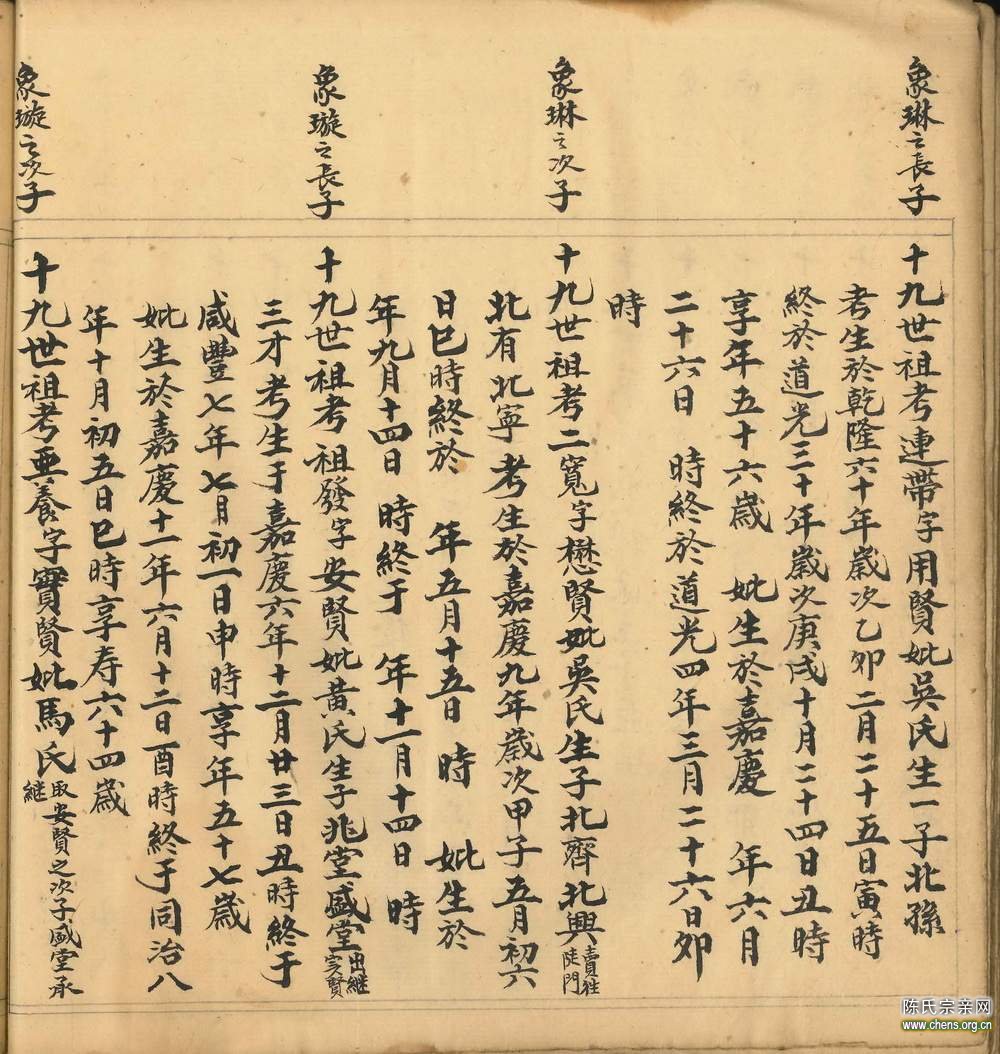 象琳之長子
十九世祖考連帶字用賢妣吳氏生一子北孫
考生於乾隆六十年歲次乙卯二月二十五日寅時
終於道光三十年歲次庚戌十月二十四日丑時
享年五十六歲 妣生於嘉慶 年六月
二十六日 時終於道光四年三月二十六日夘
時
象琳之次子
十九世祖考二寬字懋賢妣吳氏生子北齊北興賣往陡門
北有北寧考生於嘉慶九年歲次甲子五月初六
日巳時終於 年五月十五日 時 妣生於
年九月十四日 時終于 年十一月十四日 時
象璇之長子
十九世祖考祖發字安賢妣黃氏生子兆堂盛堂出繼寳賢
三才考生于嘉慶六年十二月廿三日丑時終于
咸豐七年七月初一日申時享年五十七歲
妣生於嘉慶十一年六月十二日酉時終于同治八
年十月初五日巳時享寿六十四歲
象璇之次子
十九世祖考亜養字寳賢妣馬氏取安賢之次子盛堂承繼
陈氏宗亲网
www.chens.org.cn